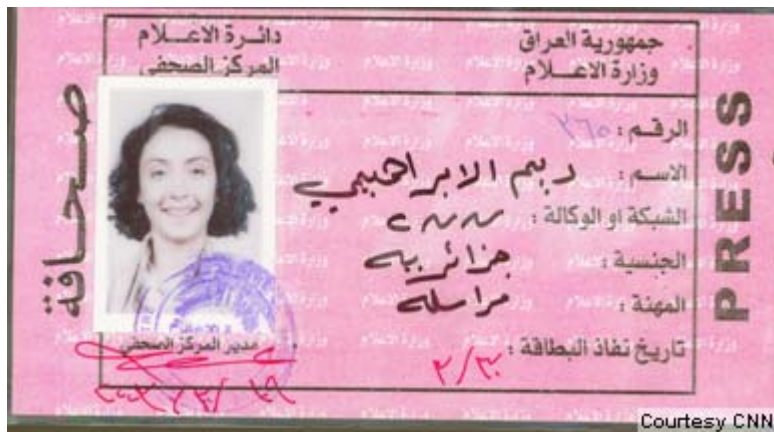 جمهورية العراق
وزارة الاعـــلام
دائــرة الاعـــلام
المركز الصحفي
صحــافة
PRESS
الرقـم : ٢٦٥
الاسـم : ديم الابراهيمي
الشبكة او الوكالة : س ن ن
الجنسية : جزائريه
المهنة : مراسله
تاريخ نفاذ البطاقة : ٣/٣٠
مدير المركز الصحفي
Courtesy CNN